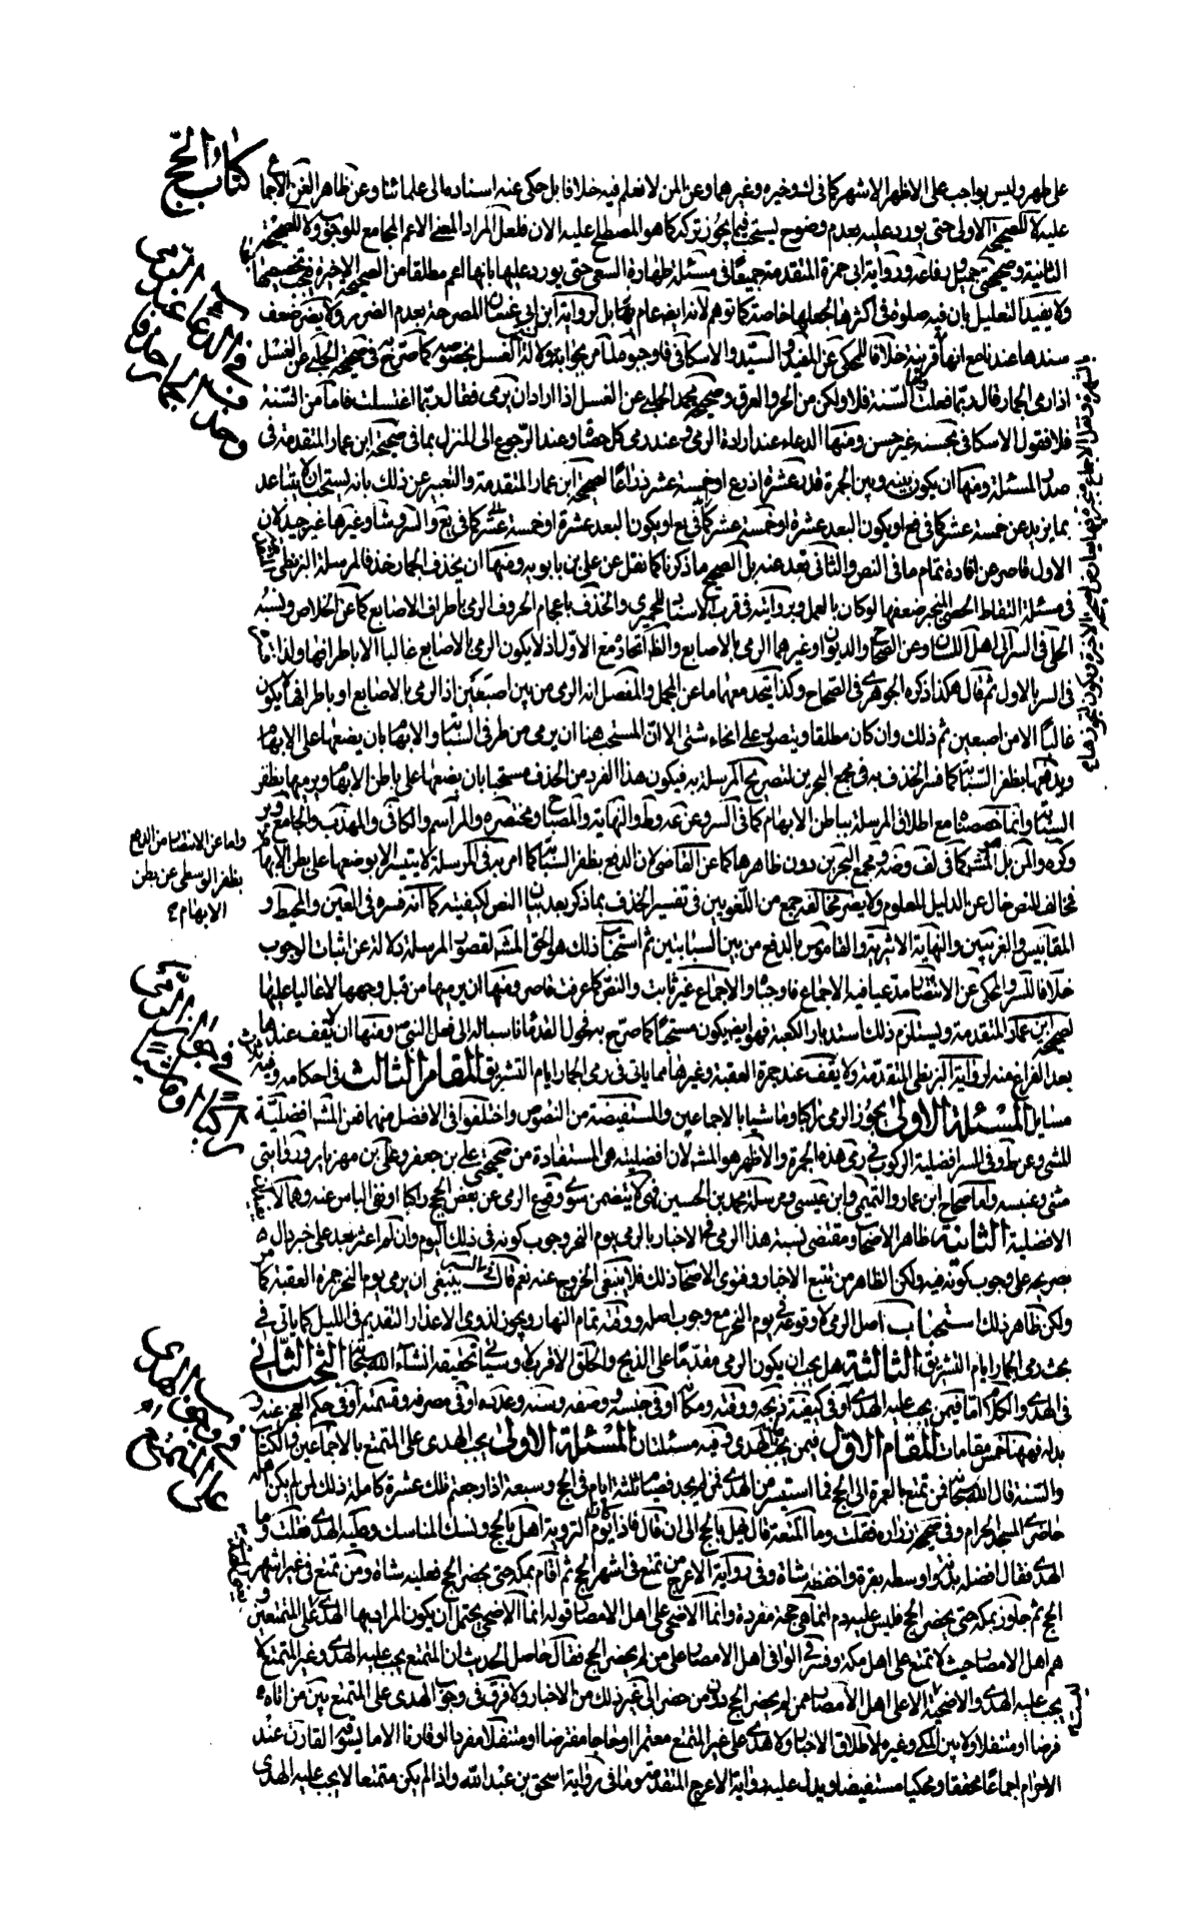 كتاب الحج
على طهر وليس بواجب على الاظهر الاشهر كما في ك وخيره وغيرهما وعن المن لا نعلم فيه خلافا بل حكى عنه اسناده الى علمائنا وعن ظاهر الغن الاجماع
عليه لا للصحيحة الاولى حتى يورد عليه بعدم وضوح يستحب فيما يجوز تركه كما هو المصطلح عليه الان فلعل المراد المعنى الاعم الجامع للوجوب ولا للصحيحة
الثانية وصحيحتي جميل ورفاعة ورواية ابي حمزة المتقدمة جميعا في مسئلة طهارة السعى حتى يورد عليها بانها اعم مطلقا من الصحيحة الاخيرة فيجب تخصيصها
ولا يفيد التعليل بان فيه صلوة في اكثرها لجعلها خاصة كما توهم لانه ايضا عام بل لرواية ابن ابي غسان المصرحة بعدم الضرر ولا يضر ضعف
سندها عندنا مع انها قرينة خلافا للمحكى عن المفيد والسيد والاسكافي فاوجبوه لما مر بجوابه ولا الغسل بخصوصه كما صرح به في صحيحة الحلبي عن الغسل
اذا رمى الجمار قال ربما فعلت اما السنة فلا ولكن من الحر والعرق وصحيحة محمد الحلبي عن الغسل اذا اراد ان يرمى فقال ربما اغتسلت فاما من السنة
فلا فقول الاسكافي بحسنه غير حسن ومنها الدعاء عند ارادة الرمى وعند رمى كل حصاة وعند الرجوع الى المنزل بما في صحيحة ابن عمار المتقدمة في
صدر المسئلة ومنها ان يكون بينه وبين الجمرة قدر عشرة اذرع او خمسة عشر ذراعا لصحيحة ابن عمار المتقدمة والتعبير عن ذلك بانه يستحب ان لا يتباعد
بما يزيد عن خمسة عشر كما في فع او يكون البعد عشرة او خمسة عشر كما في يع او يكون البعد عشرة او خمسة عشر كما في يع والسر وشا وغيرها غير جيد لان
الاول قاصر عن افادة تمام ما في النص والثاني قعد عنه بل الصحيح ما ذكرنا كما نقل عن على بن بابويه ومنها ان يخذف الجمار خذفا لمرسلة البزنطى
في مسئلة التقاط الحصى المنجبر ضعفها لو كان بالعمل وبروايته في قرب الاسناد للحميري والخذف باعجام الحروف الرمى باطراف الاصابع كما عن الخلاص ونسبه
الحلى في السرائر الى اهل اللسان وعن الصحاح والديوان وغيرهما الرمى بالاصابع والظ اتحاده مع الاول اذ لا يكون الرمى بالاصابع غالبا الا باطرافها ولذا
في السر بالاول ثم قال هكذا ذكره الجوهري في الصحاح وكذا يتحد معهما ما عن المجمل والمفصل انه الرمى من بين اصبعين اذ الرمى بالاصابع او باطرافها لا يكون
غالبا الا من اصبعين ثم ذلك وان كان مطلقا ويتصور على انحاء شتى الا ان المستحب هنا ان يرمى من طرفي السبابة والابهام بان يضعها على الابهام
ويدفعها بظفر السبابة كما فسر الخذف به في مجمع البحرين لتصريح المرسلة به فيكون هذا الفرد من الخذف مستحبا بان يضعها على باطن الابهام ويرميها بظفر
السبابة وانما خصصنا مع اطلاق المرسلة بباطن الابهام كما في السر وعن غه وط والنهاية والمصباح ومختصره والمراسم والكافي والمهذب والجامع
وكره والمن بل المشهور كما في لف وضه ومجمع البحرين دون ظاهرها كما عن القاضي لان الدفع بظفر السبابة كما امر به في المرسلة لا يتيسر الا بوضعها على بطن الابهام
فمخالف للنص خال عن الدليل المعلوم ولا يضر مخالفة جمع من اللغويين في تفسير الخذف بما ذكر بعد بيان النص لكيفيته كما انه فسره في العين والمحيط و
المقاييس والغريبين والنهاية الاثيرية والقاموس بالدفع من بين السبابتين ثم استحباب ذلك هو الحق المشهور لقصور المرسلة دلالة عن اثبات الوجوب
خلافا للسر والمحكى عن الانتصار مدعيا فيه الاجماع فاوجباه والاجماع غير ثابت والنص كما عرفت قاصر ومنها ان يرميها من قبل وجهها لا عاليا عليها
لصحيحة ابن عمار المتقدمة ويستلزم ذلك استدبار الكعبة فهو ايضا يكون مستحبا كما صرح به فحول القدماء ناسبا له الى فعل النبي ص ومنها ان لا يقف عندها
بعد الفراغ منه لرواية البزنطى المتقدمة ولا يقف عند جمرة العقبة وغيرها مما ياتى في رمى الجمار ايام التشريق المقام الثالث في احكامه وفيه
مسايل المسئلة الاولى يجوز الرمى راكبا وماشيا بالاجماعين والمستفيضة من النصوص واختلفوا في الافضل منهما فعن المشهور افضلية
المشى وعن ط وفي السر افضلية الركوب في رمى هذه الجمرة والاظهر هو المشهور لان افضليته هي المستفادة من صحيحتي على بن جعفر وعلى بن مهزيار وروايتي
مثنى وعنبسة واما صحاح ابن عمار والتميمي وابن عيسى ومرسلة محمد بن الحسين فهي لا يتضمن سوى وقوع الرمى عن بعض الحجج راكبا او نفى الباس عنه وهما لا
الافضلية الثانية ظاهر الاصحاب ومقتضى نسبة هذا الرمى في الاخبار بالرمى يوم النحر وجوب كونه في ذلك اليوم وان لم اعثر بعد على خبر دال
بصريحه على وجوب كونه فيه ولكن الظاهر من تتبع الاخبار وفتوى الاصحاب ذلك فلا ينبغى الخروج عنه نعم قال في السر ينبغى ان يرمى يوم النحر جمرة العقبة
ولكن ظاهر ذلك استحباب اصل الرمى لا وقوعه في يوم النحر مع وجوب اصله ووقته تمام النهار ويجوز لذوي الاعذار التقديم في الليل كما ياتى في
بحث رمى الجمار ايام التشريق الثالثة هل يجب ان يكون الرمى مقدما على الذبح والحلق الاقرب لا وسياتي تحقيقه انشاء الله سبحانه البحث الثاني
في الهدى والكلام اما فيمن يجب عليه الهدى او في كيفية ذبحه ووقته ومكانه او في جنسه وصفته وسنه وعدده او في مصرفه وقسمته او في حكم العجز عنه و
بدله فههنا خمس مقامات المقام الاول فيمن يجب عليه الهدى وفيه مسئلتان المسئلة الاولى يجب الهدى على المتمتع بالاجماعين والكتاب
والسنة قال الله سبحانه فمن تمتع بالعمرة الى الحج فما استيسر من الهدى فمن لم يجد فصيام ثلثة ايام في الحج وسبعة اذا رجعتم تلك عشرة كاملة ذلك لمن لم يكن اهله
حاضري المسجد الحرام وفي صحيحة زرارة فقلت وما المتعة قال يهل بالحج الى ان قال فاذا كان يوم التروية اهل بالحج ونسك المناسك وعليه الهدى فقلت وما
الهدى فقال افضله بدنة واوسطه بقرة واخفضه شاة وفي رواية الاعرج من تمتع في اشهر الحج ثم اقام بمكة حتى يحضر الحج فعليه شاة ومن تمتع في غير اشهر
الحج ثم جاور بمكة حتى يحضر الحج فليس عليه دم انما هي حجة مفردة وانما الاضحى على اهل الامصار قوله انما الاضحى يحتمل ان يكون المراد بها الهدى على المتمتعين
هم اهل الامصار حيث لا تمتع على اهل مكة وفسره في الوافي اهل الامصار على من لم يحضر الحج فقال حاصل الحديث ان المتمتع يجب عليه الهدى وغير المتمتع لا
يجب عليه الهدى والاضحية الا على اهل الامصار ممن لم يحضر الحج دون من حضر الى غير ذلك من الاخبار ولا فرق في وجوب الهدى على المتمتع بين من اتاه
فرضا او متنفلا ولا بين المكى وغيره لاطلاق الاخبار ولا هدى على غير المتمتع معتمرا او حاجا مفترضا او متنفلا مفردا او قارنا الا ما يسوقه القارن عند
الاحرام اجماعا محققا ومحكيا مستفيضا ويدل عليه رواية الاعرج المتقدمة وما في رواية اسحق بن عبد الله واذا لم يكن متمتعا لا يجب عليه الهدى
في الدعاء عند الرمى
واما عن الانتصار من الدفع
بظفر الوسطى عن بطن
الابهام ع
في جواز الرمى
راكبا وماشيا
في وجوب الهدى
على المتمتع